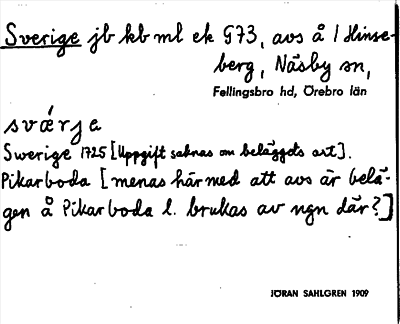 Sverige jb kb ml ek 973, avs å / Hinse-
berg, Näsby sn,
Fellingsbro hd, Örebro län
sværja
Swerige 1725 [Uppgift saknas om beläggets art].
Pikarboda [menas härmed att avs är belä-
gen å Pikarboda l. brukas av ngn där?]
JÖRAN SAHLGREN 1909